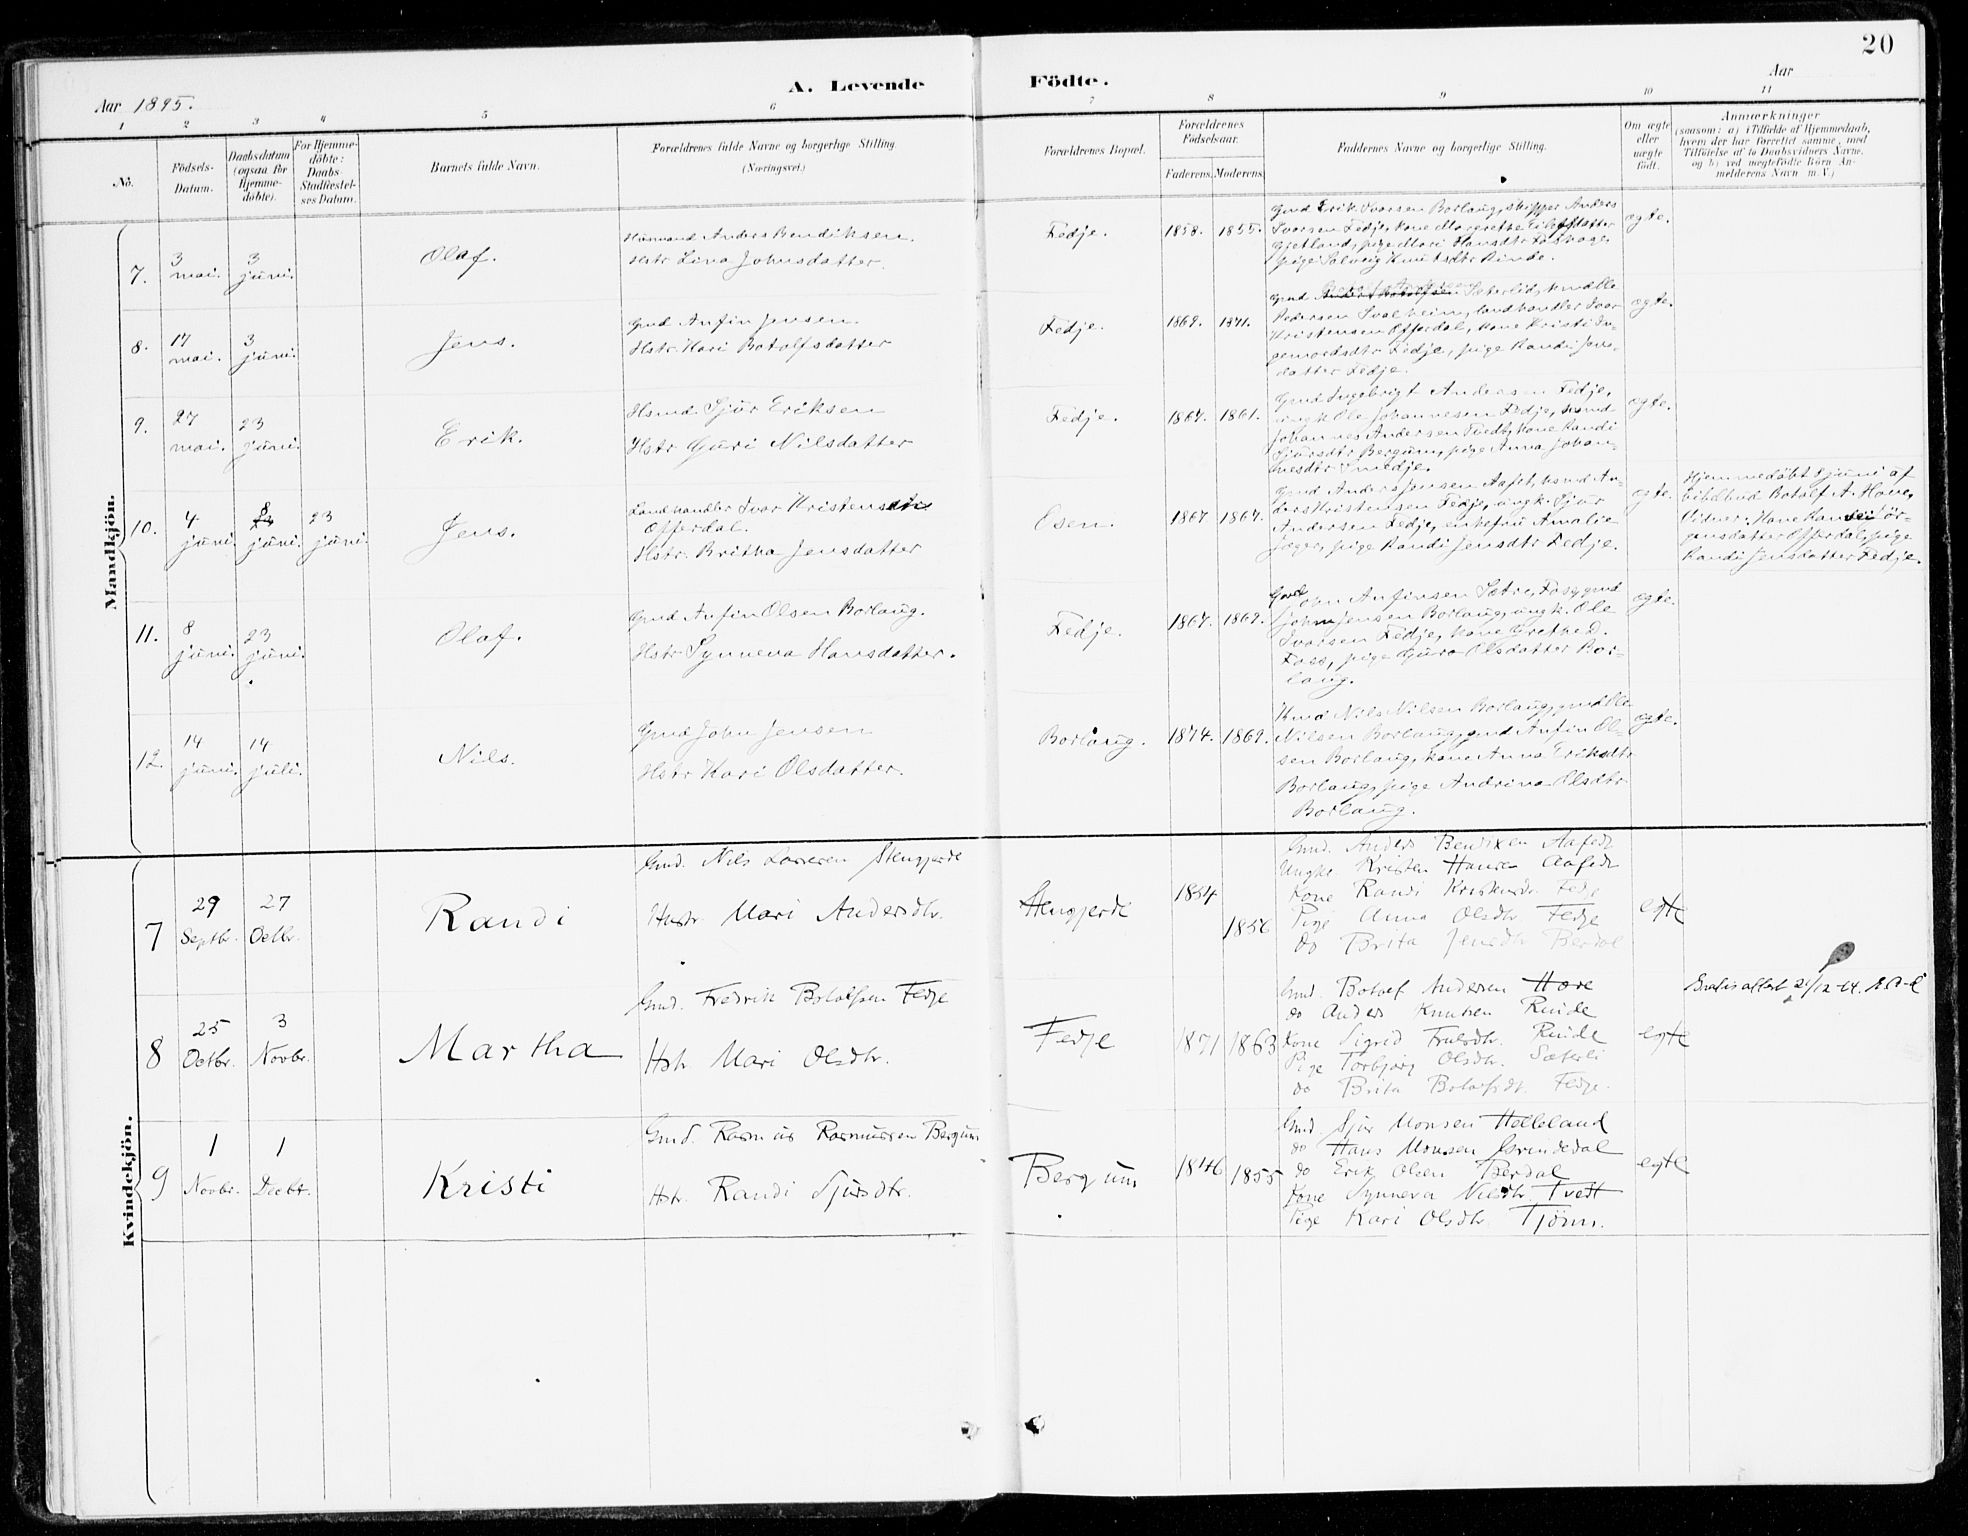 20
Aar 1895.
A. Levende Födte.
Aar
1 2 3 4 5 6 7 8 9 10 11
No.
Födsels-Datum.
Daabsdatum (ogsaa for Hjemme-döbte).
For Hjemme-döbte: Daabs-Stadfæstel-ses Datum.
Barnets fulde Navn.
Forældrenes fulde Navne og borgerlige Stilling.
(Næringsvei.)
Forældrenes Bopæl.
Forældrenes Födselsaar.
Faderens. Moderens.
Faddernes Navne og borgerlige Stilling.
Om ægte eller uægte födt.
Anmærkninger
(saasom: a) i Tilfælde af Hjemmedaab,
hvem der har forrettet samme, med
Tilföielse af to Daabsvidners Navne,
og b) ved uægtefödte Börn An-
melderens Navn m. V.)
Mandkjön.
7.
3 mai.
3 juni.
Olaf.
Husmand Anders Bendiksen.
Hstr Lina Johnsdatter.
Fedje.
1858. 1855.
Gmd Erik Ivarsen Borlaug, skipper Anders
Ivarsen Fedje, kone Margrethe
pige Mari Hansdtr
pige Solveig Knutsdtr Rinde.
ægte.
8.
17 mai.
3 juni.
Jens.
Gmd Anfin Jensen.
Hstr Kari Botolfsdatter
Fedje.
1869. 1871.
Gmd Sæterlid,
Pedersen Svalheim, landhandler Ivar
Kristensen Offerdal, kone Kristi In-
gemordsdtr Fedje, pige Randi Jens-
datter Fedje.
ægte.
9.
27 mai.
23 juni.
Erik.
Hsmd. Sjur Eriksen
Hstr Guri Nilsdatter
Fedje.
1867. 1861.
Gmd Ingebrigt Andersen Fedje,
ungk Ole Johannesen Fedje, hsmd
Johannes Andersen Tvedt, kone Randi
Sjursdtr Bergum, pige Anna Johan-
nesdtr Smedje.
ægte.
10.
4 juni.
8 juni.
23 juni.
Jens.
Landhandler Ivar Kristensen
Offerdal.
Hstr. Britha Jensdatter
Esen.
1867 1867.
Gmd Anders Jensen Aafet, hsmd An-
ders Kristensen Fedje, ungk. Sjur
Andersen Fedje, enkefru Amalie
Jæger, pige Randi Jensdtr Fedje.
ægte.
Hjemmedøbt 8 juni af
kirkebud Botolf A. Hove,
Vidner: Kone Randi Jör-
gensdatter Offerdal, pige
Randi Jensdatter Fedje.
11.
8 juni.
23 juni.
Olaf.
Gmd Anfin Olsen Borlaug.
Hstr Synneva Hansdatter.
Fedje.
1867. 1869.
Gmd John Anfinsen Sætre, Fos, gmd
John Jensen Borlaug, ungk. Ole
Ivarsen Fedje, kone Grethe D.
Foss, pige Guro Olsdatter Bor-
laug.
ægte.
12.
14 juni.
14 juli.
Nils.
Gmd John Jensen
Hstr Kari Olsdatter.
Borlaug.
1874. 1869.
Kmd Nils Nilsen Borlaug, gmd Ole
Nilsen Borlaug, gmd Anfin Ol-
sen Borlaug, kone Anna Eriksdtr
Borlaug, pige Andrina Olsdtr
Borlaug.
ægte.
Kvindekjön.
7
29 Septbr.
27 Octbr.
Randi
Gmd. Nils Larsen Stengjerde
Hustr Mari Andersdtr.
Stengjerde
1854 1856
Gmd. Anders Bendixen Aafedt
Ungkr. Kristen Hansen Aafedt
Kone Randi Kristensdr. Fedje
Pige Anna Olsdtr. Fedje
do Brita Jensdtr Berdal
egte
8
25 Octbr.
3 Novbr.
Martha
Gmd. Fredrik Botolfsen Fedje
Hstr. Mari Olsdtr.
Fedje
1871 1863
Gmd. Botolf Andersen Hove
do Anders Knutsen Rinde
Kone Sigrid Rinde
Pige Torbjørg Olsdtr. Sæterli
do Brita Botolfsdt. Fedje.
egte
Gratisattest 21/12-64.
9
1 Novbr.
1 Decbr.
Kristi
Gmd. Rasmus Rasmussen Bergum
Hstr. Randi Sjursdtr.
Bergum
1846 1855
Gmd. Sjur Monsen Helleland
do Hans Monsen Grindedal
do Erik Olsen Berdal
Kone Synneva Nilsdtr. Tvedt
Pige Kari Olsdtr. Tjønn.
egte